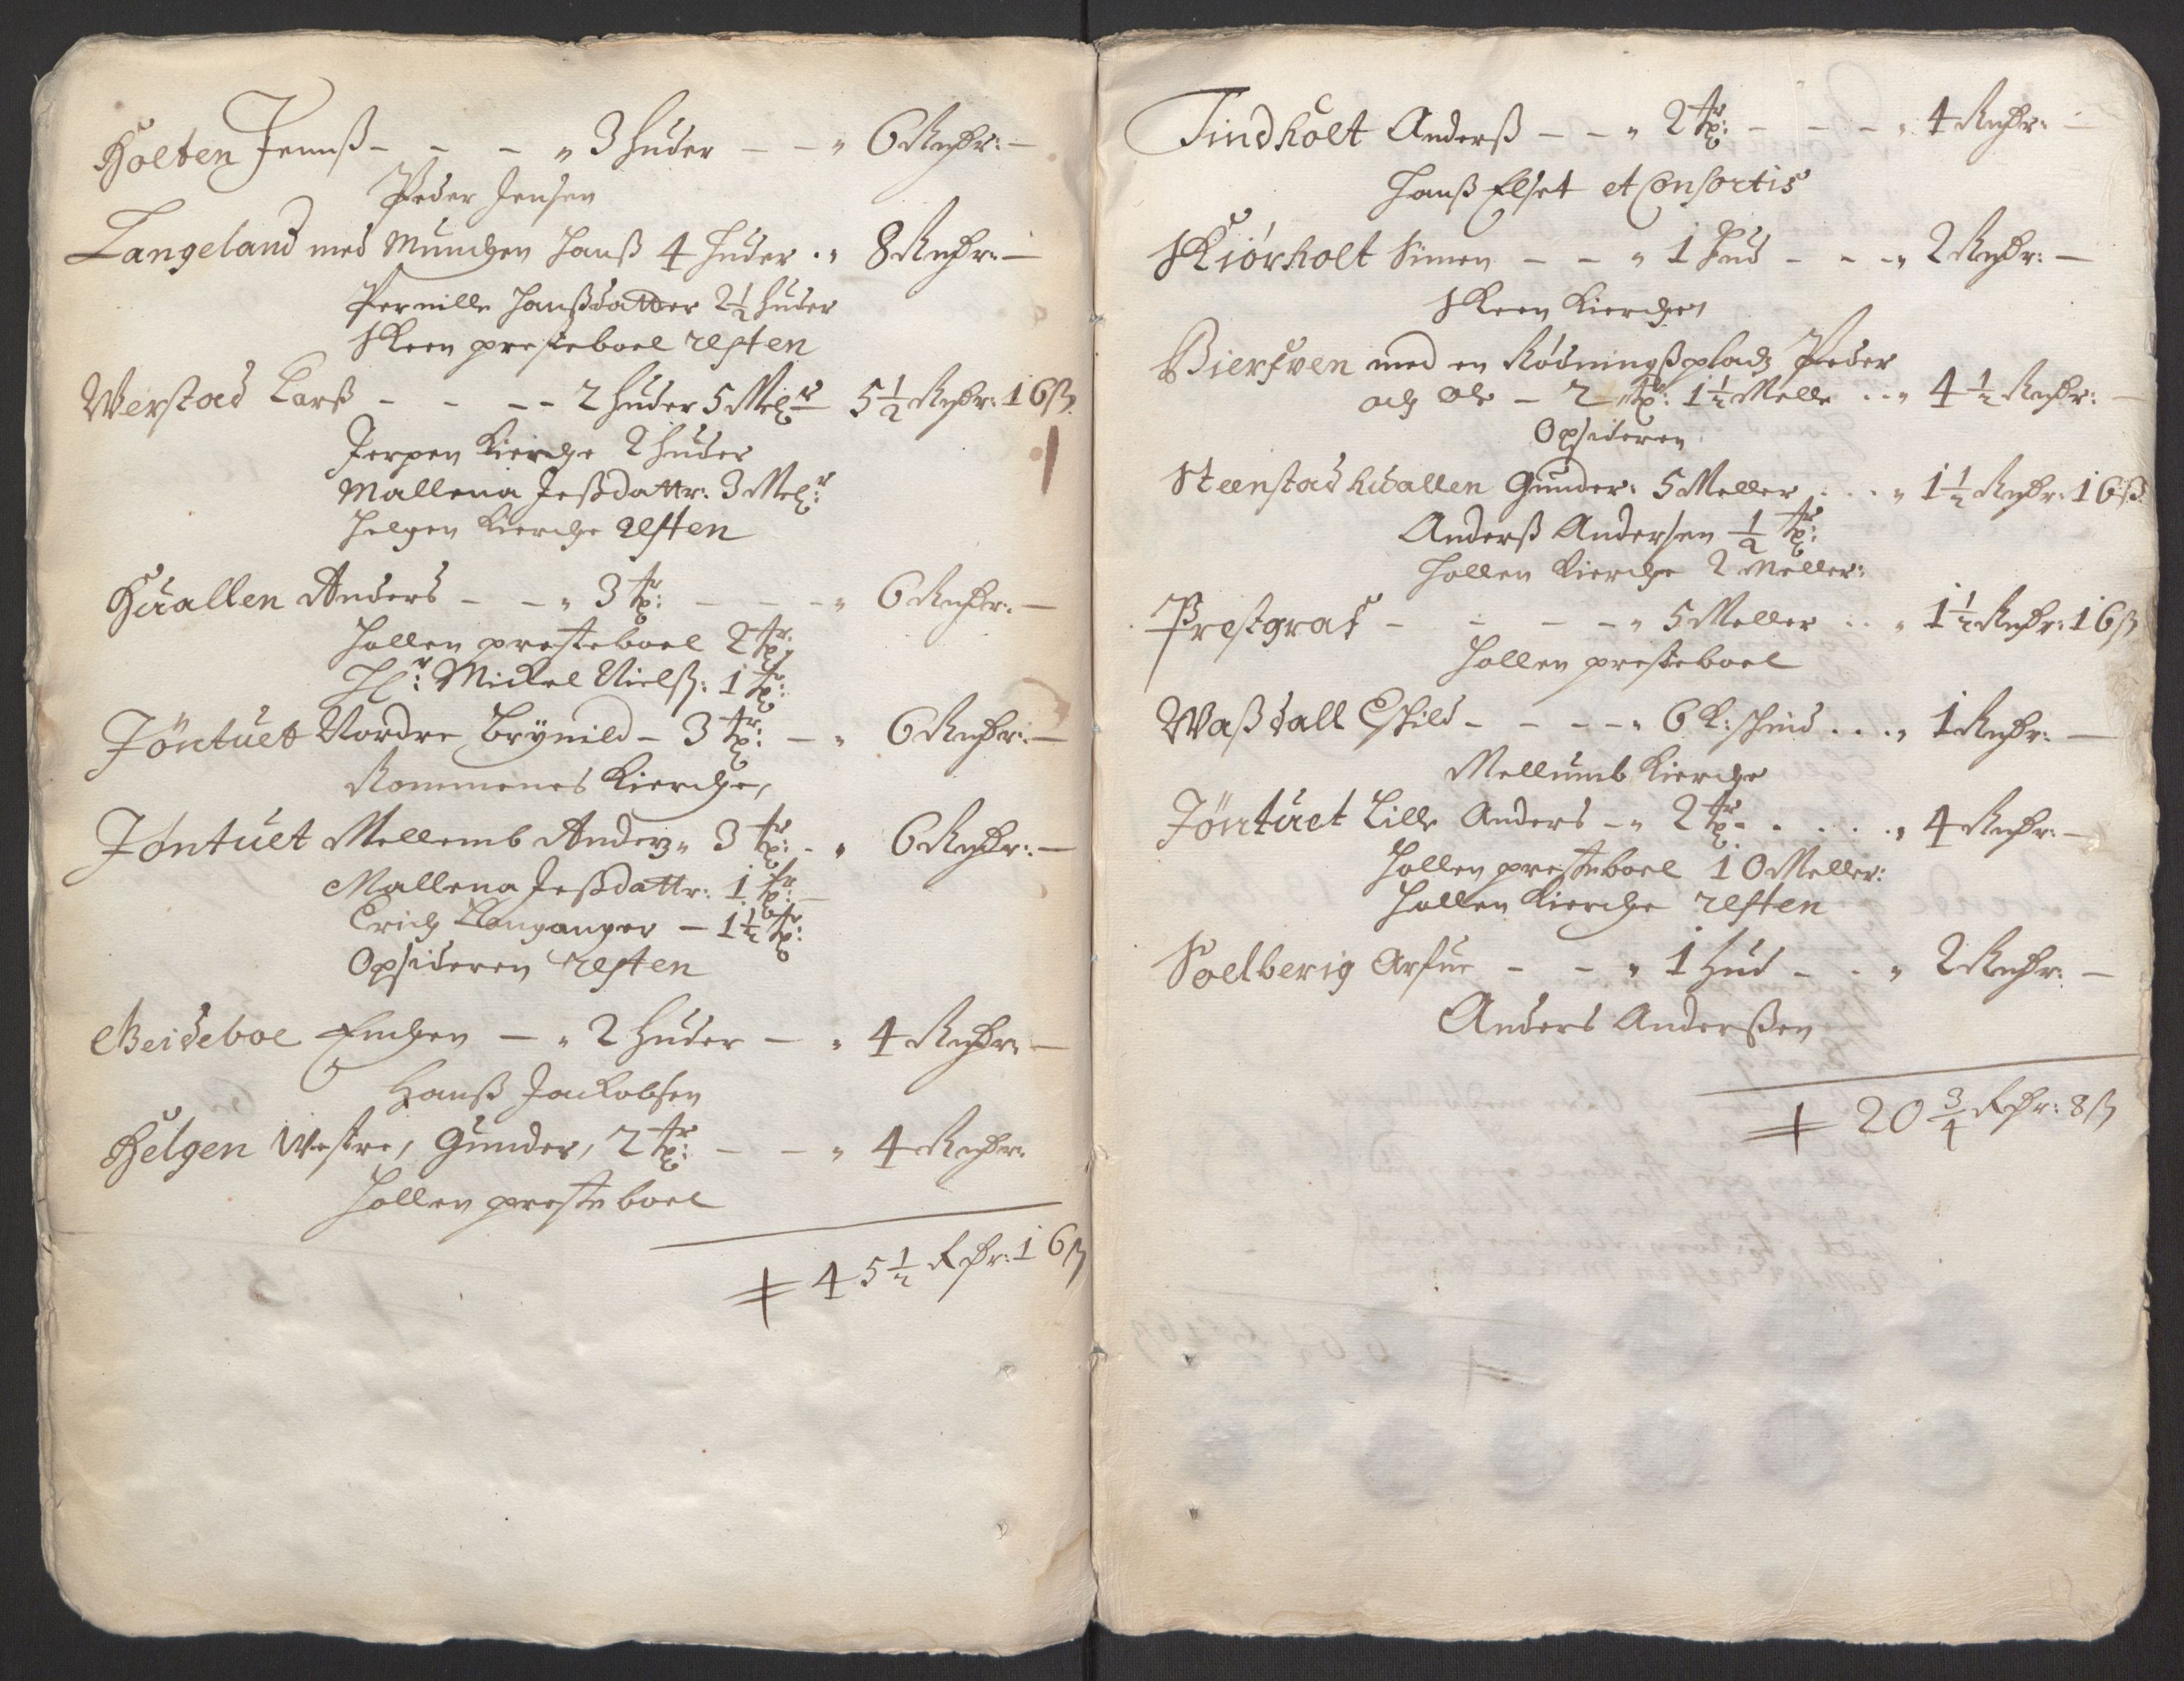 Holten Jennß - - - „ 3 huder - - „ 6 Rixdr: -
Peder Jensen
Langeland med Munchen Hanß 4 huder . „ 8 Rixdr: -
Pernille Hanßdatter 2½ huder
Skeen presteboel resten
Werstad Larß - - - - 2 huder 5 Melr 5½ Rixdr: 16 ß
Jerpen Kierche 2 huder
Mallena Jeßdattr: 3 Melr:
Helgen Kierche resten
Huallen Anders - - „ 3 tr: - - - „ 6 Rixdr: -
Hollen presteboel 2 tr:
Hr: Mickel Nielß: 1 tr:
Jöntuet Nordre Brynild - 3 tr: - „ 6 Rixdr: -
Rommenes Kierche,
Jöntuet Mellemb Anderz „ 3 tr: - „ 6 Rixdr: -
Mallena Jeßdattr: 1 tr: -
Erich Langanger - 1½ tr:
Opsideren resten
Beideboe - „ 2 huder - „ 4 Rixdr: -
Hanß Jackobsen
Helgen Westre, Gunder, 2 tr: - - „ 4 Rixdr:
Hollen presteboel
45½ Rdr: 16 ß
Tindholt Anderß - - „ 2 tr: - - - „ 4 Rixdr: -
Hanß Elset et Consortis
Skiörholt Simen - - „ 1 hud - - „ 2 Rixdr: -
Skeen Kierche
Bierfven med en Rödningßpladz Peder
och Ole - 2 tr: 1½ Melle . . „ 4½ Rixdr: -
Opsideren
Steenstad huallen Gunder: 5 Meller . . . „ 1½ Rixdr: 16 ß
Anderß Andersen ½ tr:
Hollen Kierche 2 Meller:
Prestgraf - - - - „ 5 Meller . . „ 1½ Rixdr: 16 ß
Hollen presteboel
Waßdall Eskild - - - - „ 6 K: skind . . . „ 1 Rixdr: -
Mellumb Kierche
Jöntuet Lille Anders - „ 2 tr: . . . . „ 4 Rixdr: -
Hollen presteboel 10 Meller:
Hollen Kierche resten
Soelberig Arfue - - „ 1 Hud - - „ 2 Rixdr: -
Anders Anderßen
20¾ Rdr: 8 ß